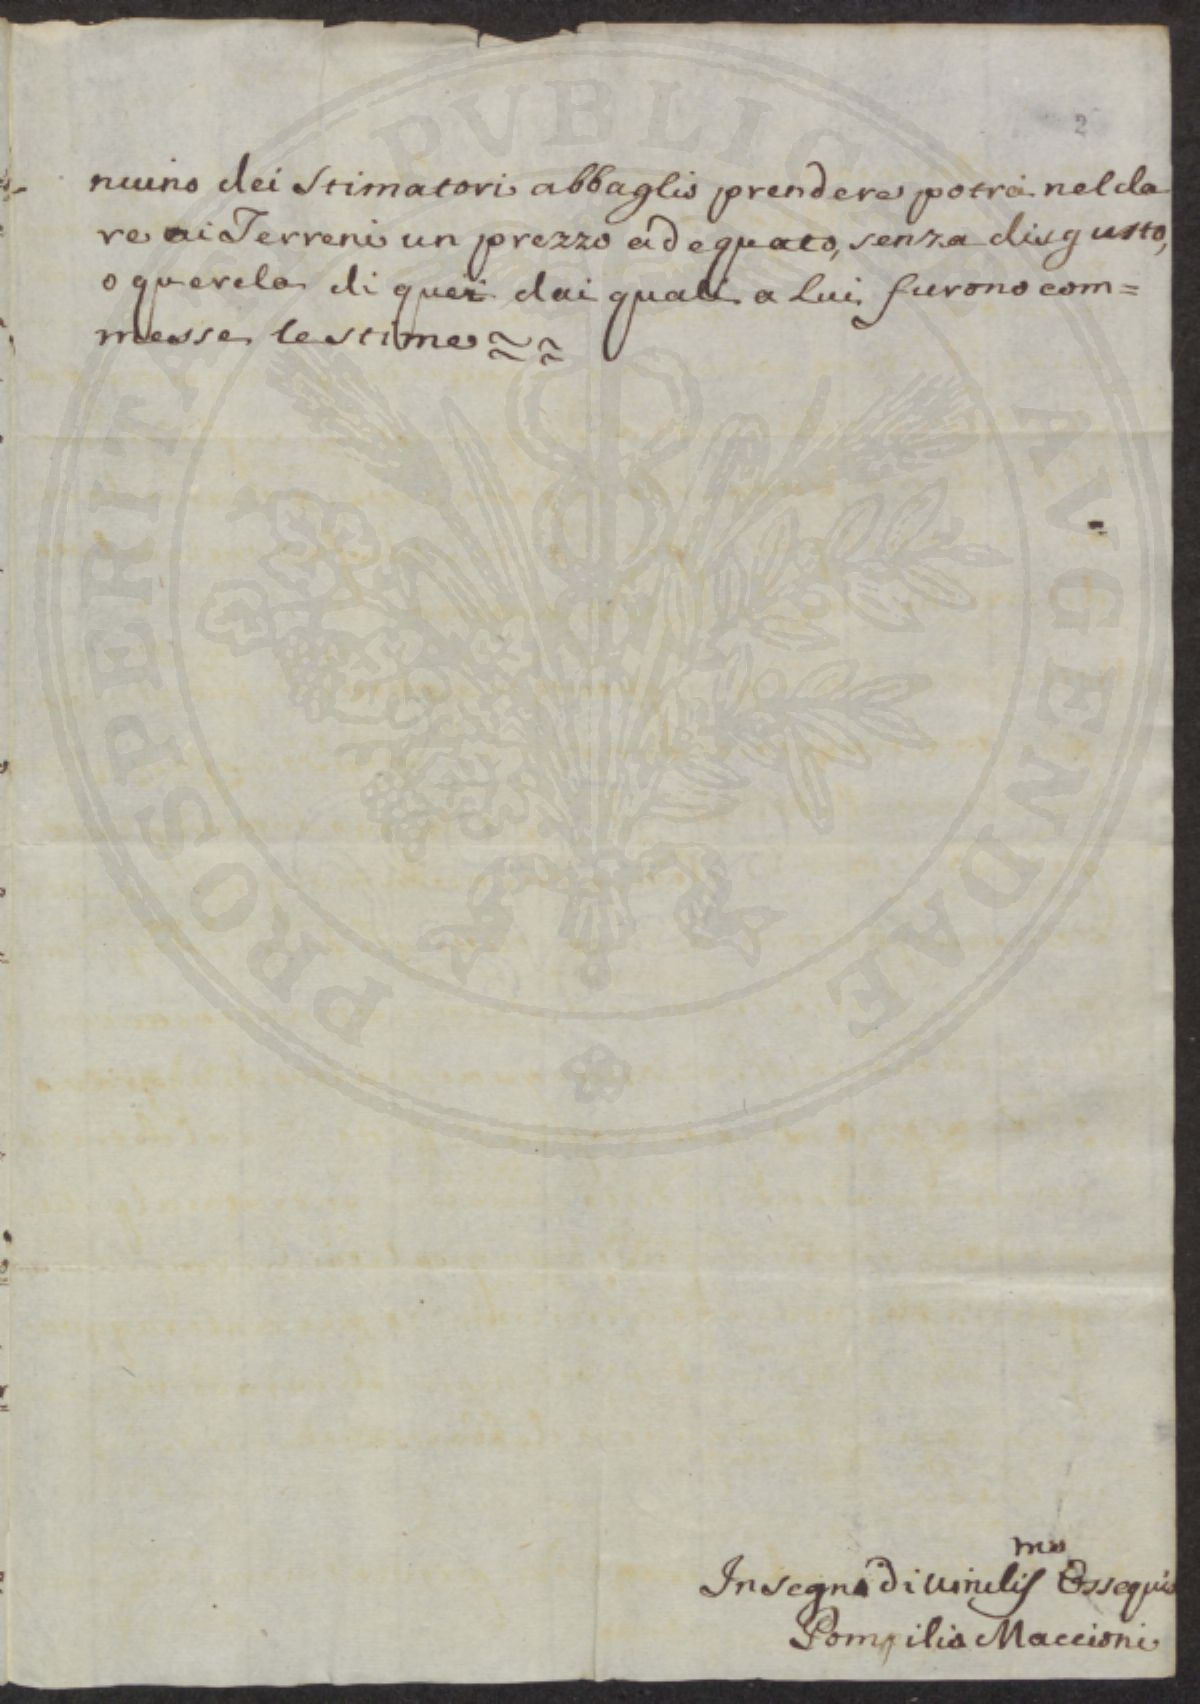 2
niuno dei Stimatori abbaglio prendere potrà nel da
re ai Terreni un prezzo adequato, senza disgusto,
o querela di quei dai quali a lui furono com=
messe le stime
In segno di umilis mo Ossequio
Pompilio Maccioni
PROSPERITATI PVBLICAE AVGENDAE